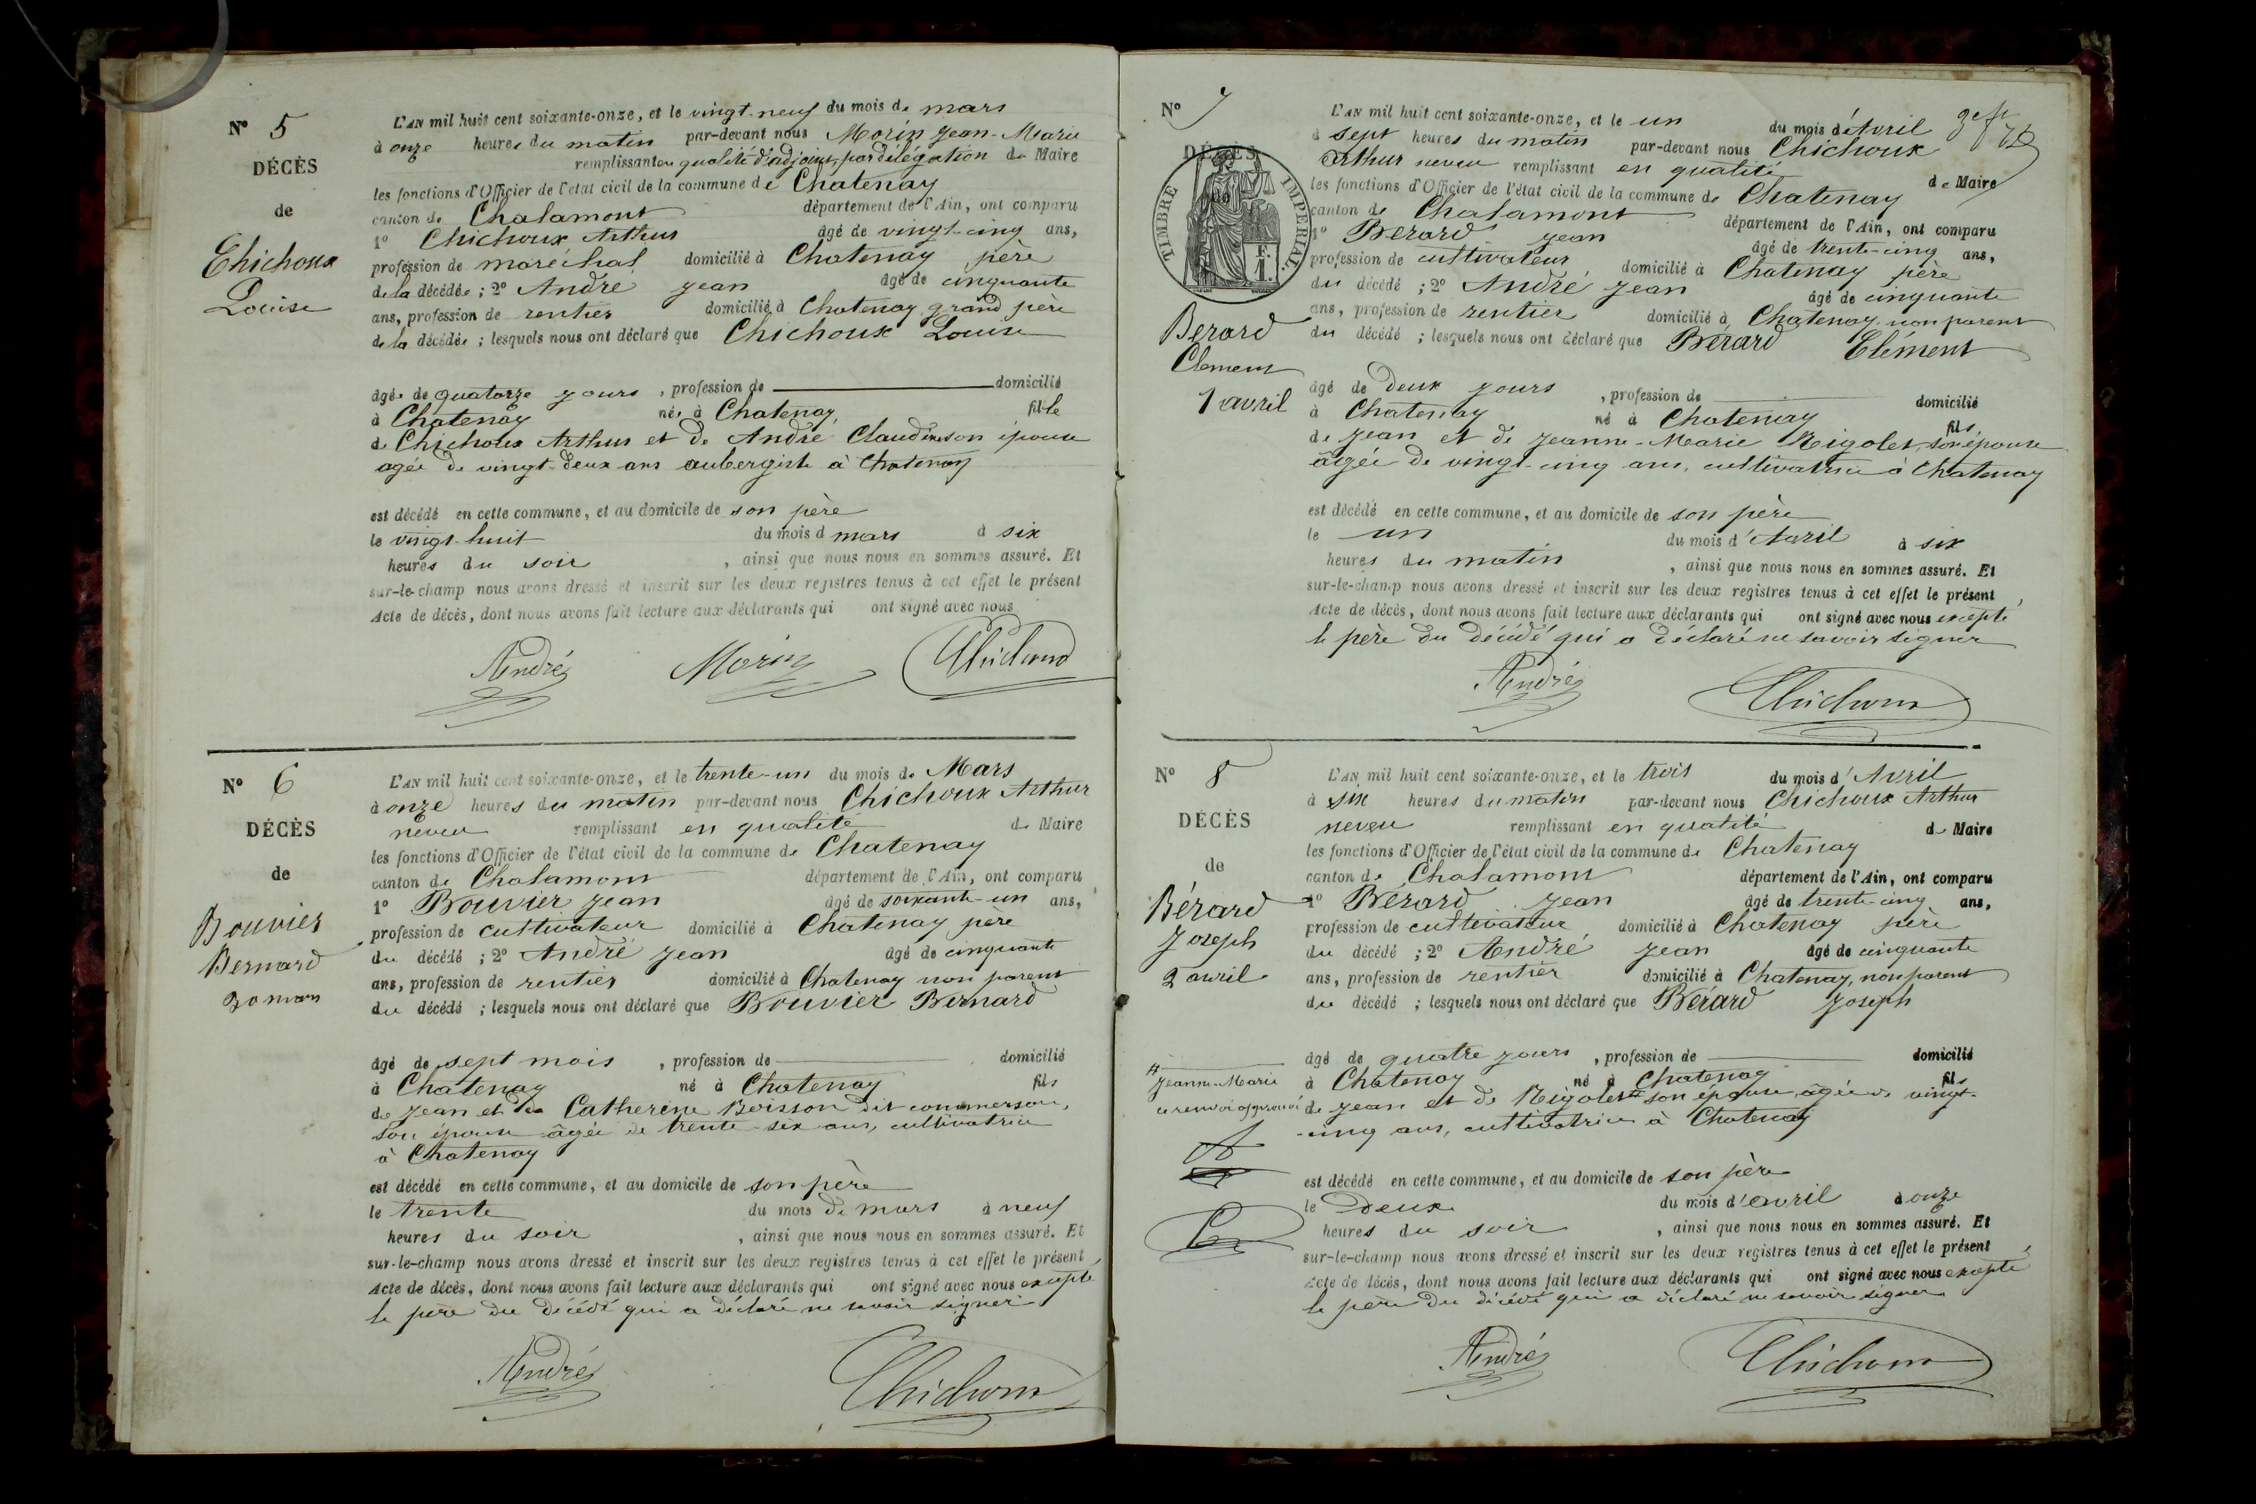 N° 5
DÉCÈS
de
Chichoux
Louise
L'AN mil huit cent soixante-onze, et le vingt-neuf du mois de mars
à onze heures du matin par-devant nous Morin Jean-Marie
remplissant en qualité d'adjoint, par délégation de Maire
les fonctions d'Officier de l'état civil de la commune de Chatenay
canton de Chalamont département de l'Ain, ont comparu
1° Chichoux Arthur âgé de vingt-cinq ans,
profession de maréchal domicilié à Chatenay père
de la décédée ; 2° André Jean âgé de cinquante
ans, profession de rentier domicilié à Chatenay grand père
de la décédée ; lesquels nous ont déclaré que Chichoux Louise
âgée de quatorze jours , profession de domicilié
à Chatenay née à Chatenay fille
de Chichoux Arthur et de André Claudine son épouse
agée de vingt-deux ans aubergiste à Chatenay
est décédé en cette commune, et au domicile de son père
le vingt-huit du mois d mars à six
heures du soir , ainsi que nous nous en sommes assuré. Et
sur-le-champ nous avons dressé et inscrit sur les deux registres tenus à cet effet le présent
Acte de décès, dont nous avons fait lecture aux déclarants qui ont signé avec nous
André Morin Chichoux
N° 6
DÉCÈS
de
Bouvier
Bernard
30 mars
L'AN mil huit cent soixante-onze, et le trente-un du mois de Mars
à onze heures du matin par-devant nous Chichoux Arthur
neveu remplissant en qualité de Maire
les fonctions d'Officier de l'état civil de la commune de Chatenay
canton de Chalamont département de l'Ain, ont comparu
1° Bouvier Jean âgé de soixante-un ans,
profession de cultivateur domicilié à Chatenay père
du décédé ; 2° André Jean âgé de cinquante
ans, profession de rentier domicilié à Chatenay non parent
du décédé ; lesquels nous ont déclaré que Bouvier Bernard
âgé de sept mois , profession de domicilié
à Chatenay né à Chatenay fils
de Jean et de Catherine Boisson dit commerson,
son épouse âgée de trente-six ans, cultivatrice
à Chatenay
est décédé en cette commune, et au domicile de son père
le trente du mois de mars à neuf
heures du soir , ainsi que nous nous en sommes assuré. Et
sur-le-champ nous avons dressé et inscrit sur les deux registres tenus à cet effet le présent
Acte de décès, dont nous avons fait lecture aux déclarants qui ont signé avec nous excepté
le père du décédé qui a déclaré ne savoir signer
André Chichoux
N° 7
DÉCÈS
TIMBRE IMPÉRIAL.
F. 1.
Berard
Clement
1 avril
L'AN mil huit cent soixante-onze, et le un du mois d'Avril
à sept heures du matin par-devant nous Chichoux
Arthur neveu remplissant en qualité de Maire
les fonctions d'Officier de l'état civil de la commune de Chatenay
canton de Chalamont département de l'Ain, ont comparu
1° Berard Jean âgé de trente-cinq ans,
profession de cultivateur domicilié à Chatenay père
du décédé ; 2° André Jean âgé de cinquante
ans, profession de rentier domicilié à Chatenay, non parent
du décédé ; lesquels nous ont déclaré que Bérard Clément
âgé de deux jours , profession de domicilié
à Chatenay né à Chatenay fils
de Jean et de Jeanne-Marie Rigolet, son épouse
âgée de vingt-cinq ans, cultivatrice à Chatenay
est décédé en cette commune, et au domicile de son père
le un du mois d'Avril à six
heures du matin , ainsi que nous nous en sommes assuré. Et
sur-le-champ nous avons dressé et inscrit sur les deux registres tenus à cet effet le présent
Acte de décès, dont nous avons fait lecture aux déclarants qui ont signé avec nous excepté
le père du décédé qui a déclaré ne savoir signer
André Chichoux
N° 8
DÉCÈS
de
Bérard
Joseph
2 avril
L'AN mil huit cent soixante-onze, et le trois du mois d'Avril
à six heures du matin par-devant nous Chichoux Arthur
neveu remplissant en qualité de Maire
les fonctions d'Officier de l'état civil de la commune de Chatenay
canton de Chalamont département de l'Ain, ont comparu
1° Bérard Jean âgé de trente-cinq ans,
profession de cultivateur domicilié à Chatenay père
du décédé ; 2° André Jean âgé de cinquante
ans, profession de rentier domicilié à Chatenay, non parent
du décédé ; lesquels nous ont déclaré que Bérard Joseph
âgé de quatre jours , profession de domicilié
à Chatenay né à Chatenay fils
de Jean et de Rigolet # son épouse, âgée de vingt-
-cinq ans, cultivatrice à Chatenay
# Jeanne-Marie
ce renvoi approuvé
est décédé en cette commune, et au domicile de son père
le Deux du mois d'avril à onze
heures du soir , ainsi que nous nous en sommes assuré. Et
sur-le-champ nous avons dressé et inscrit sur les deux registres tenus à cet effet le présent
Acte de décès, dont nous avons fait lecture aux déclarants qui ont signé avec nous excepté
le père du décédé qui a déclaré ne savoir signer
André Chichoux